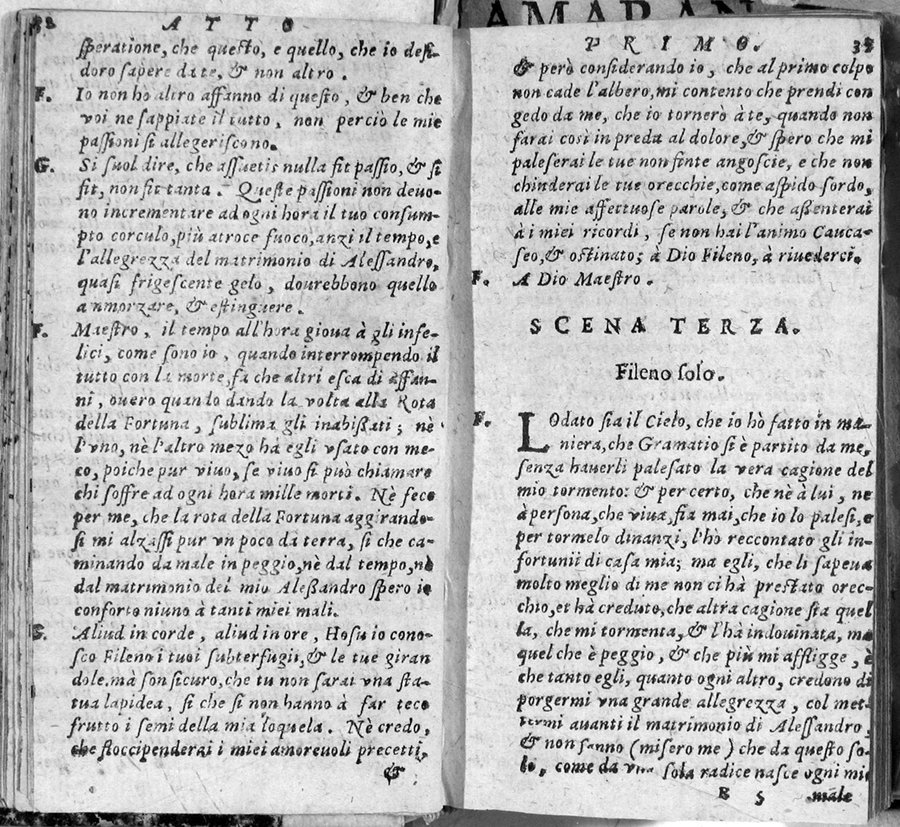 AMARAN
32 ATTO
speratione, che questo, e quello, che io desi-
doro sapere da te, & non altro.
F. Io non ho altro affanno di questo, & ben che
voi ne sappiate il tutto, non perciò le mie
passioni si allegeriscono.
G. Si suol dire, che assuetis nulla fit passio, & si
fit, non fit tanta. Queste passioni non deuo-
no incrementare ad ogni hora il tuo consum-
pto corculo, più atroce fuoco, anzi il tempo, e
l'allegrezza del matrimonio di Alessandro,
quasi frigescente gelo, dourebbono quello
ammorzare, & estinguere.
F. Maestro, il tempo all'hora gioua à gli infe-
lici, come sono io, quando interrompendo il
tutto con la morte, fa che altri esca di affan-
ni, ouero quando dando la volta alla Rota
della Fortuna, sublima gli inabissati; nè
l'vno, nè l'altro mezo hà egli vsato con me-
co, poiche pur viuo, se viuo si può chiamare
chi soffre ad ogni hora mille morti. Nè fece
per me, che la rota della Fortuna aggirando-
si mi alzassi pur vn poco da terra, si che ca-
minando da male in peggio, nè dal tempo, nè
dal matrimonio del mio Alessandro spero io
conforto niuno à tanti miei mali.
G. Aliud in corde, aliud in ore, Hosu io cono-
sco Fileno i tuoi subterfugii, & le tue giran
dole, mà son sicuro, che tu non sarai vna sta-
tua lapidea, si che si non hanno à far teco
frutto i semi della mia loquela. Nè credo,
che floccipenderai i miei amoreuoli precetti,
&
PRIMO. 33
& però considerando io, che al primo colpo
non cade l'albero, mi contento che prendi con
gedo da me, che io tornerò à te, quando non
sarai così in preda al dolore, & spero che mi
paleserai le tue non finte angoscie, e che non
chinderai le tue orecchie, come aspido sordo,
alle mie affettuose parole, & che assenterai
à i miei ricordi, se non hai l'animo Cauca-
seo, & ostinato; à Dio Fileno, à riuederci.
F. A Dio Maestro.
SCENA TERZA.
Fileno solo.
F. LOdato sia il Cielo, che io hò fatto in ma-
niera, che Gramatio si è partito da me,
senza hauerli palesato la vera cagione del
mio tormento: & per certo, che nè à lui, ne
à persona, che viua, fia mai, che io lo palesi, e
per tormelo dinanzi, l'hò reccontato gli in-
fortunii di casa mia; ma egli, che li sapeua
molto meglio di me non ci hà prestato orec-
chio, et hà creduto, che altra cagione sia quel
la, che mi tormenta, & l'hà indouinata, ma
quel che è peggio, & che più mi affligge, è
che tanto egli, quanto ogni altro, credono di
porgermi vna grande allegrezza, col met-
termi auanti il matrimonio di Alessandro,
& non sanno (misero me) che da questo so-
lo, come da vna sola radice nasce ogni mio
B 5 male